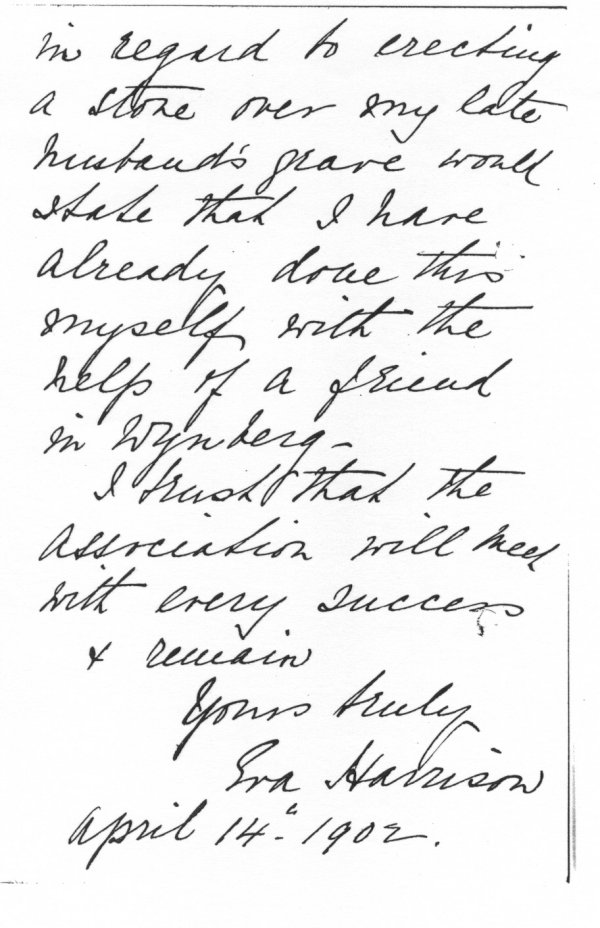 in regard to erecting
a stone over my late
husband's grave would
state that I have
already done this
myself with the
help of a friend
in Wynberg -
I trust that the
Association will meet
with every success
& remain
Yours truly
Eva Harrison
April 14" 1902.